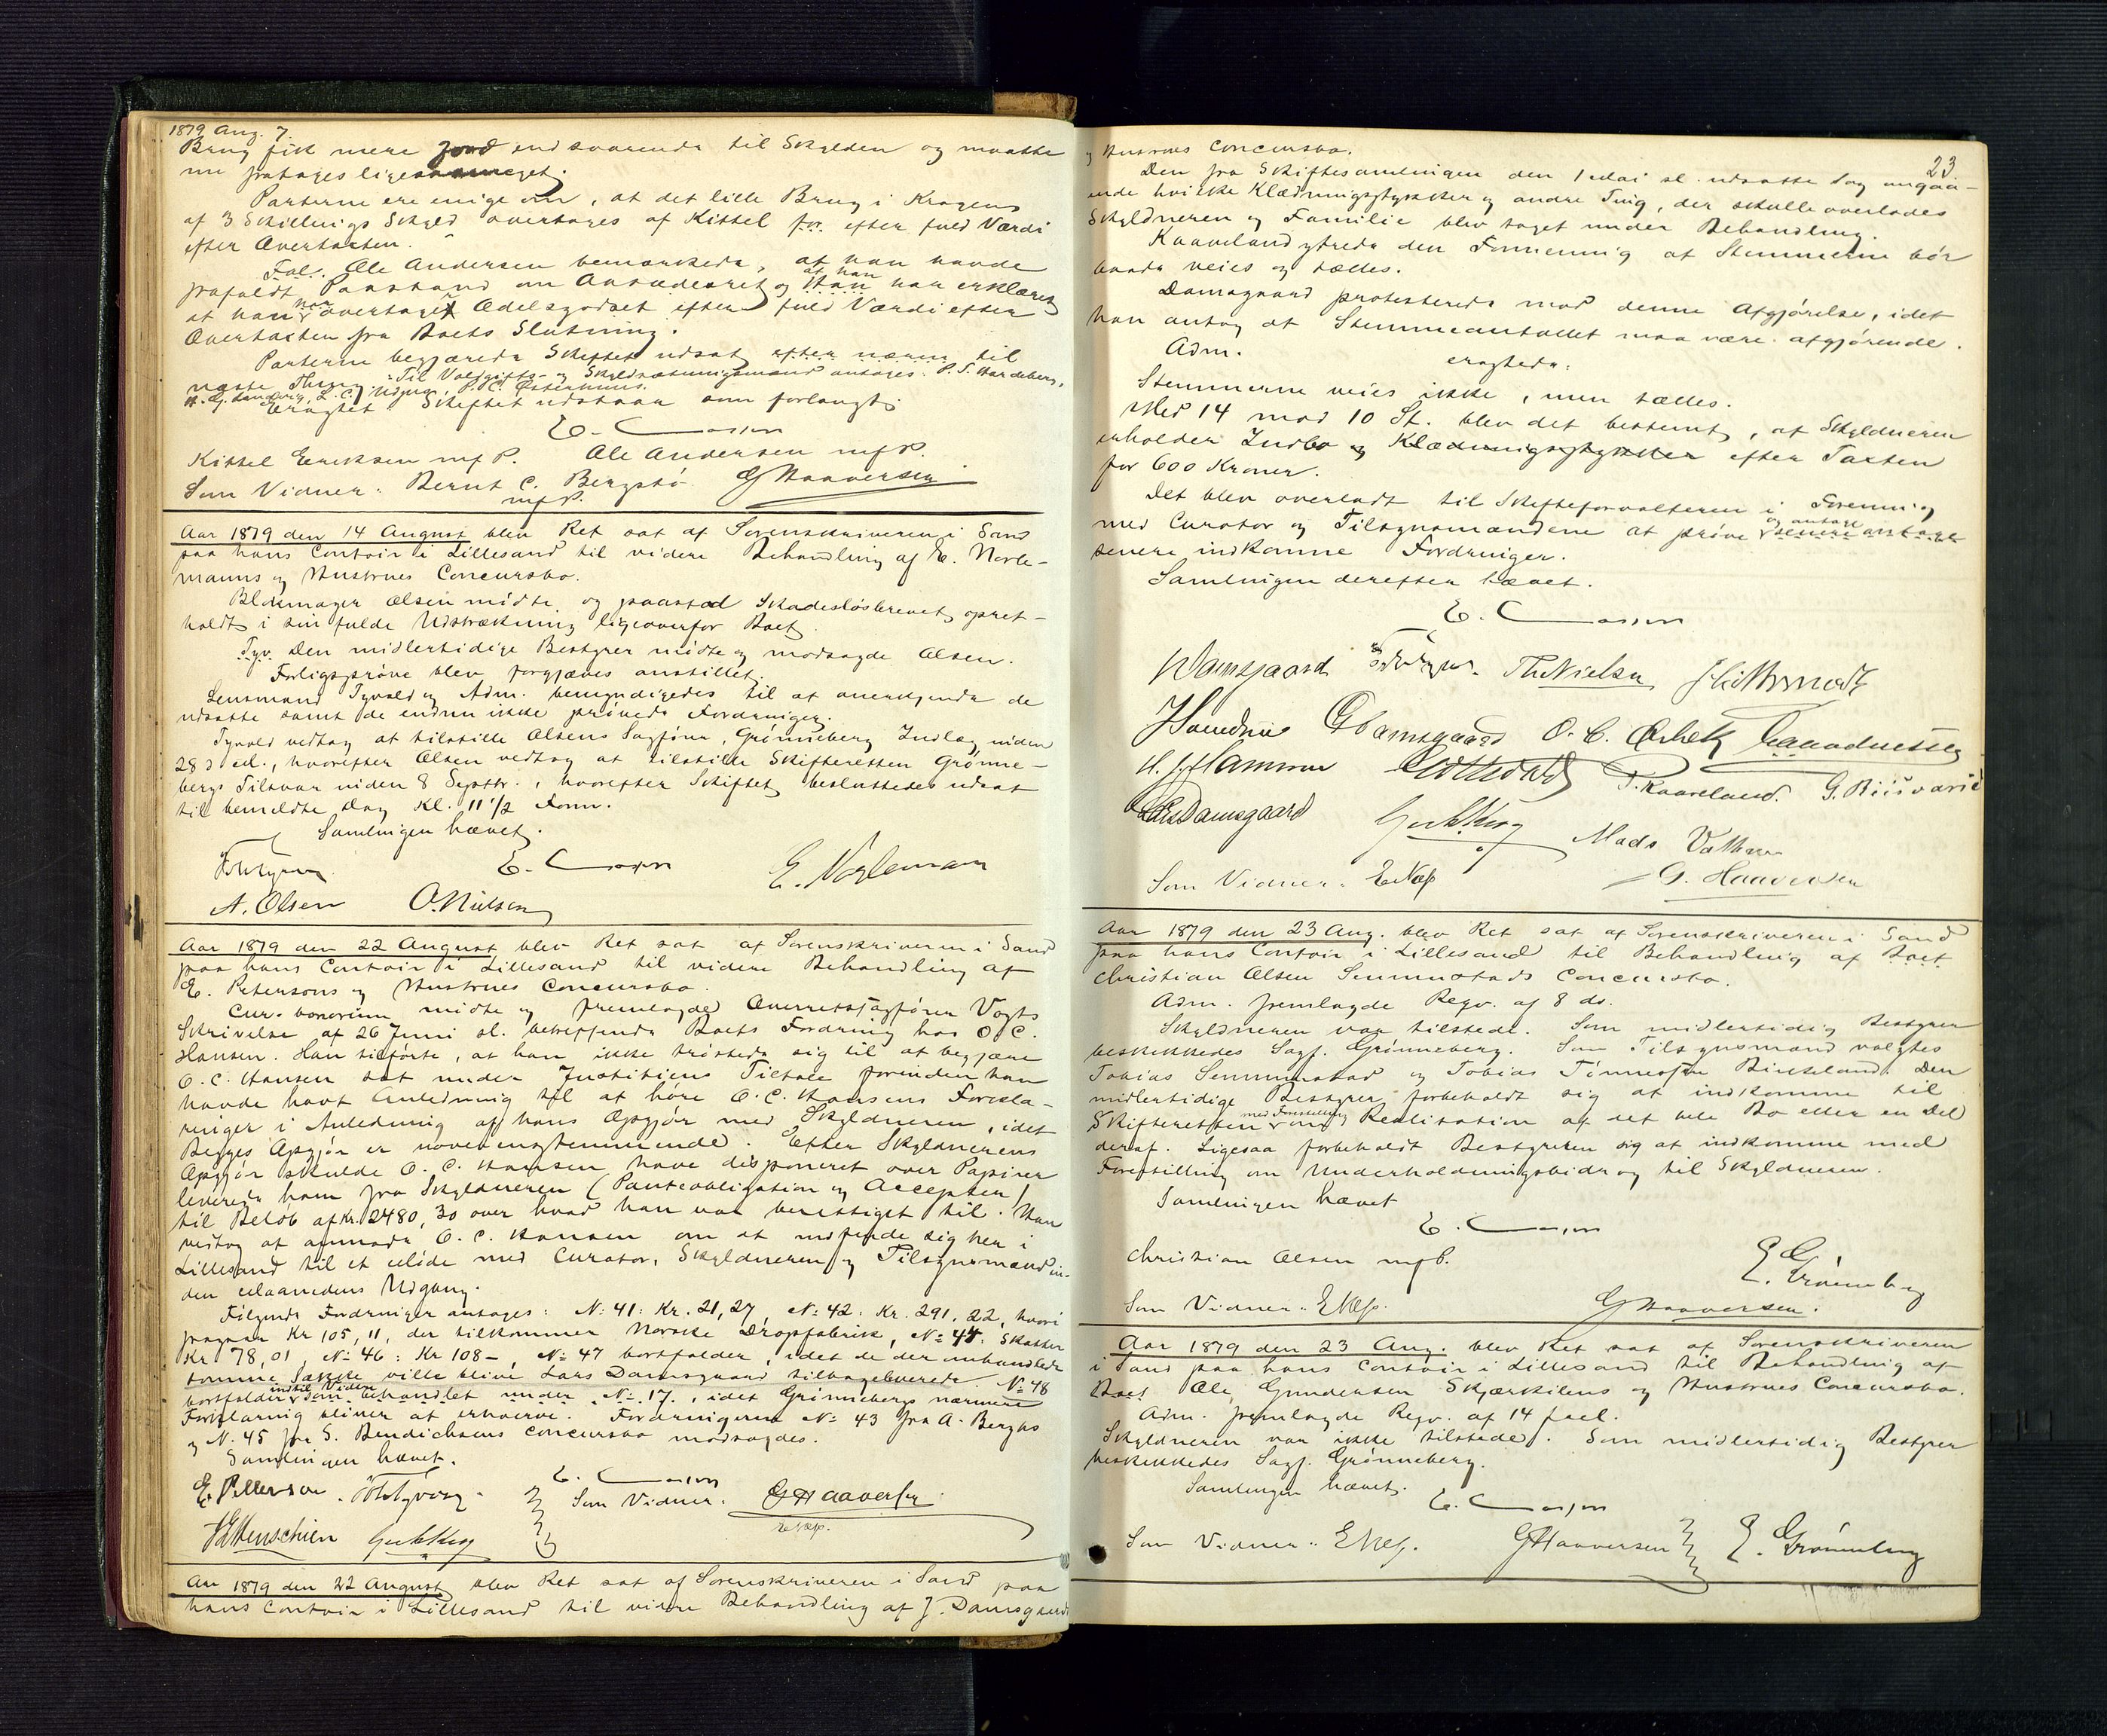 1879 Aug. 7.
Brug fik mere Jord end svarende til Skylden og maatte
nu fratages ligesaameget.
Parterne ere enige om, at det lille Brug i Kragens
af 3 Skillings Skyld overtages af Kittel for efter fuld Værdi
efter Overtaxten.
Ole Andersen bemærkede, at han havde
frafaldt Paastand om Aasædesret og at han Han har erklæret
at han har overtaget Odelsgodset efter fuld Værdi efter
Overtaxten fra Boets Slutning.
Parterne begjærede Skiftet udsat efter nærm til
næste Thing. Til Voldgifts- og Skyldsætningsmænd antages: P. S. Hardeberg,
Eragtet: Skiftet udstaar som forlangt.
E. C
Kittel Eeriksen mfP. Ole Andersen mfP.
Som Vidner: Bernt C. Bergstø GHaaversen
mfP.
Aar 1879 den 14 August blev Ret sat af Sorenskriveren i Sand
paa hans Contoir i Lillesand til videre Behandling af E. Norle-
manns og Hustrues Concursbo.
Blokmager Olsen mødte og paastod Skadesløsbrevet opret-
holdt i sin fulde Udstrækning ligeoverfor Boet.
Tyv. Den midlertidige Bestyrer mødte og modsagde Olsen.
Forligsprøve blev forgjæves anstillet.
Lensmand Tyvold og Adm. bemyndigedes til at anerkjende de
udsatte samt de endnu ikke prøvede Fordringer.
Tyvold vedtog at tilstille Olsens Sagfører, Grønneberg Indlæg inden
28 d. M., hvorefter Olsen vedtog at tilstille Skifteretten Grønne-
bergs Tilsvar inden 8 Septbr., hvorefter Skiftet besluttedes udsat
til bemeldte Dag Kl. 11 1/2 Form.
Samlingen hævet.
E. C
A. Olsen O. Nielsen
Aar 1879 den 22 August blev Ret sat af Sorenskriveren i Sand
paa hans Contoir i Lillesand til videre Behandling af
E. Petersons og Hustrues Concursbo.
Cur. bonorum mødte og fremlagde Overretssagfører Vogts
Skrivelse af 26 Juni sl. betreffende Boets Fordring hos O. C.
Hansen. Han tilførte, at han ikke trøstede sig til at begjære
O. C. Hansen sat under Justitiens Tiltale forinden han
havde havt Anledning til at høre O. C. Hansens Forcla-
ringer i Anledning af hans Opgjør med Skyldneren, idet
Begges Opgjør er uoverensstemmende. Efter Skyldnerens
Opgjør skulde O. C. Hansen have disponeret over Papirer
leverede ham fra Skyldneren (Panteobligation og Accepter)
til Beløb af Kr. 2480,30 over hvad han var berettiget til. Han
vedtog at anmode O. C. Hansen om at indfinde sig her i
Lillesand til et Møde med Curator, Skyldneren og Tilsynsmænd in-
den Maanedens Udgang.
Følgende Fordringer antages: No 41: Kr. 21,27, No 42: Kr. 291,22, hvori
fragaar Kr 105,11, der tilkommer Norske Dropsfabrik, No 44: Skatter
Kr 78,01, No 46: Kr 108-, No 47 bortfalder, idet de der omhandlede
tomme Sække ville blive Lars Damsgaard tilbageleverede. No 48
bortfalder indtil Videre som behandlet under No 17., idet Grønnebergs nærmere
Forklaring bliver at erhverve. Fordringerne No 43 fra A. Berghs
og N. 45 fra S. Bendichsens Concursbo modsagdes.
Samlingen hævet.
E. C
E. Petterson Som Vidner: GHaaversen
Aar 1879 den 22 August blev Ret sat af Sorenskriveren i Sand paa
hans Contoir i Lillesand til videre Behandling af J. Damsgaards
23
og Hustrues Concursbo.
Den fra Skiftesamlingen den 1 Mai sl. udsatte Sag angaa-
ende hvilke Klædningsstykker og andre Ting, der skulle overlades
Skyldneren og Familie blev taget under Behandling.
Kaaveland ytrede den Formening at Stemmerne bør
baade veies og tælles.
Damsgaard protesterede mod denne Afgjørelse, idet
han antog at Stemmeantallet maa være afgjørende.
Adm. eragtede:
Stemmerne veies ikke, men tælles.
Med 14 mod 10 St. blev det bestemt, at Skyldneren
erholder Indbo og Klædningsstykker efter Taxten
for 600 Kroner.
Det blev overladt til Skifteforvalteren i Forening
med Curator og Tilsynsmændene at prøve og antage senere antage
senere indkomne Fordringer.
Samlingen derefter hævet.
E. C
Damsgaard Th Nielsen
G Damsgaard
H. J. Hansen T. Kaaveland.
Lars Damsgaard Mads
Som Vidner: G. Haaversen
Aar 1879 den 23 Aug. blev Ret sat af Sorenskriveren i Sand
paa hans Contoir i Lillesand til Behandling af Boet
Christian Olsen Senumstads Concursbo.
Adm. fremlagde Reqv. af 8 ds.
Skyldneren var tilstede. Som midlertidig Bestyrer
beskikkedes Sagf. Grønneberg. Som Tilsynsmænd valgtes
Tobias Senumstad og Tobias Tønnesen Birkeland. Den
midlertidige Bestyrer forbeholdt sig at indkomme til
Skifteretten med Forestilling om Realisation af det hele Bo eller en Del
deraf. Ligesaa forbeholdt Bestyreren sig at indkomme med
Forestilling om Underholdningsbidrag til Skyldneren.
Samlingen hævet
E. C
Christian Olsen mfP. E. Grønneberg
Som Vidner: GHaaversen.
Aar 1879 den 23 Aug. blev Ret sat af Sorenskriveren
i Sand paa hans Contoir i Lillesand til Behandling af
Boet Ole Gundersen Skjærkilens og Hustrues Concursbo.
Adm. fremlagde Reqv. af 14
Skyldneren var ikke tilstede. Som midlertidig Bestyrer
beskikkedes Sagf. Grønneberg.
Samlingen hævet.
E. C
Som Vidner: GHaaversen E. Grønneberg